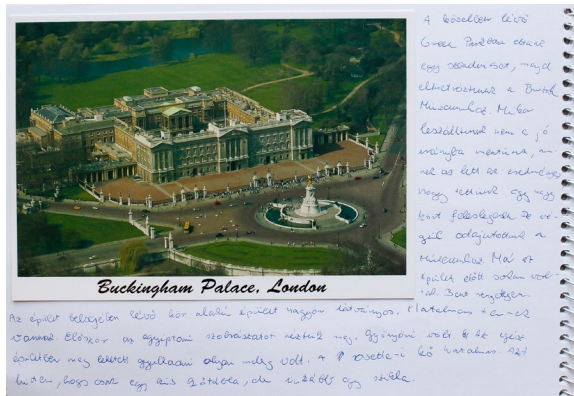 A közelben lévő
Green Parkban ettünk
egy szendvicset, majd
elmetróztunk a British
Múzeumhoz. Mikor
leszálltunk nem a jó
irányba mentünk,
az lett az eredménye
hogy tettünk egy nagy
kört feleslegesen de vé-
gül odajutottunk a
Múzeumhoz. Már az
épület előtt sokan vol-
tak. Bent rengetegen.
Buckingham Palace, London
Az épület belsejében lévő kör alakú épület nagyon látványos. Hatalmas termek
vannak. Először az egyiptomi szobrászatot néztük meg. Gyönyörű volt és az egész
épületben meg lehetett gyulladni olyan meleg volt. A rosette-i kő hatalmas. Azt
hittem, hogy csak egy kis kőtábla, de inkább egy szikla.